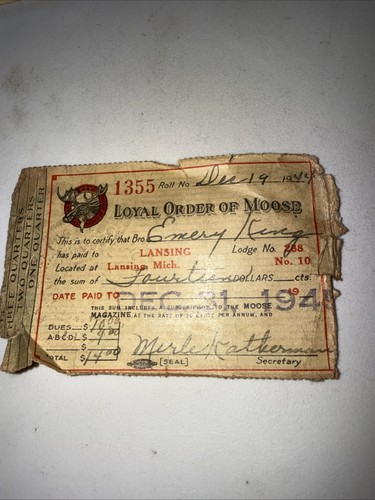 THREE QUARTERS
TWO QUARTERS
ONE QUARTER
1355 Roll No Dec 19 1944
LOYAL ORDER OF MOOSE
This is to certify that Bro Emery King
has paid to LANSING Lodge No. 288
Located at Lansing, Mich. No. 10
the sum of Fourteen DOLLARS cts.
DATE PAID TO DEC 31 194 19
THIS SUM INCLUDES A SUBSCRIPTION TO THE MOOSE
MAGAZINE AT THE RATE OF CENTS PER ANNUM, AND
DUES $ 10.00
A B C D L $ 4.00
$
TOTAL $ 14.00
Merle Katherman
[SEAL] Secretary